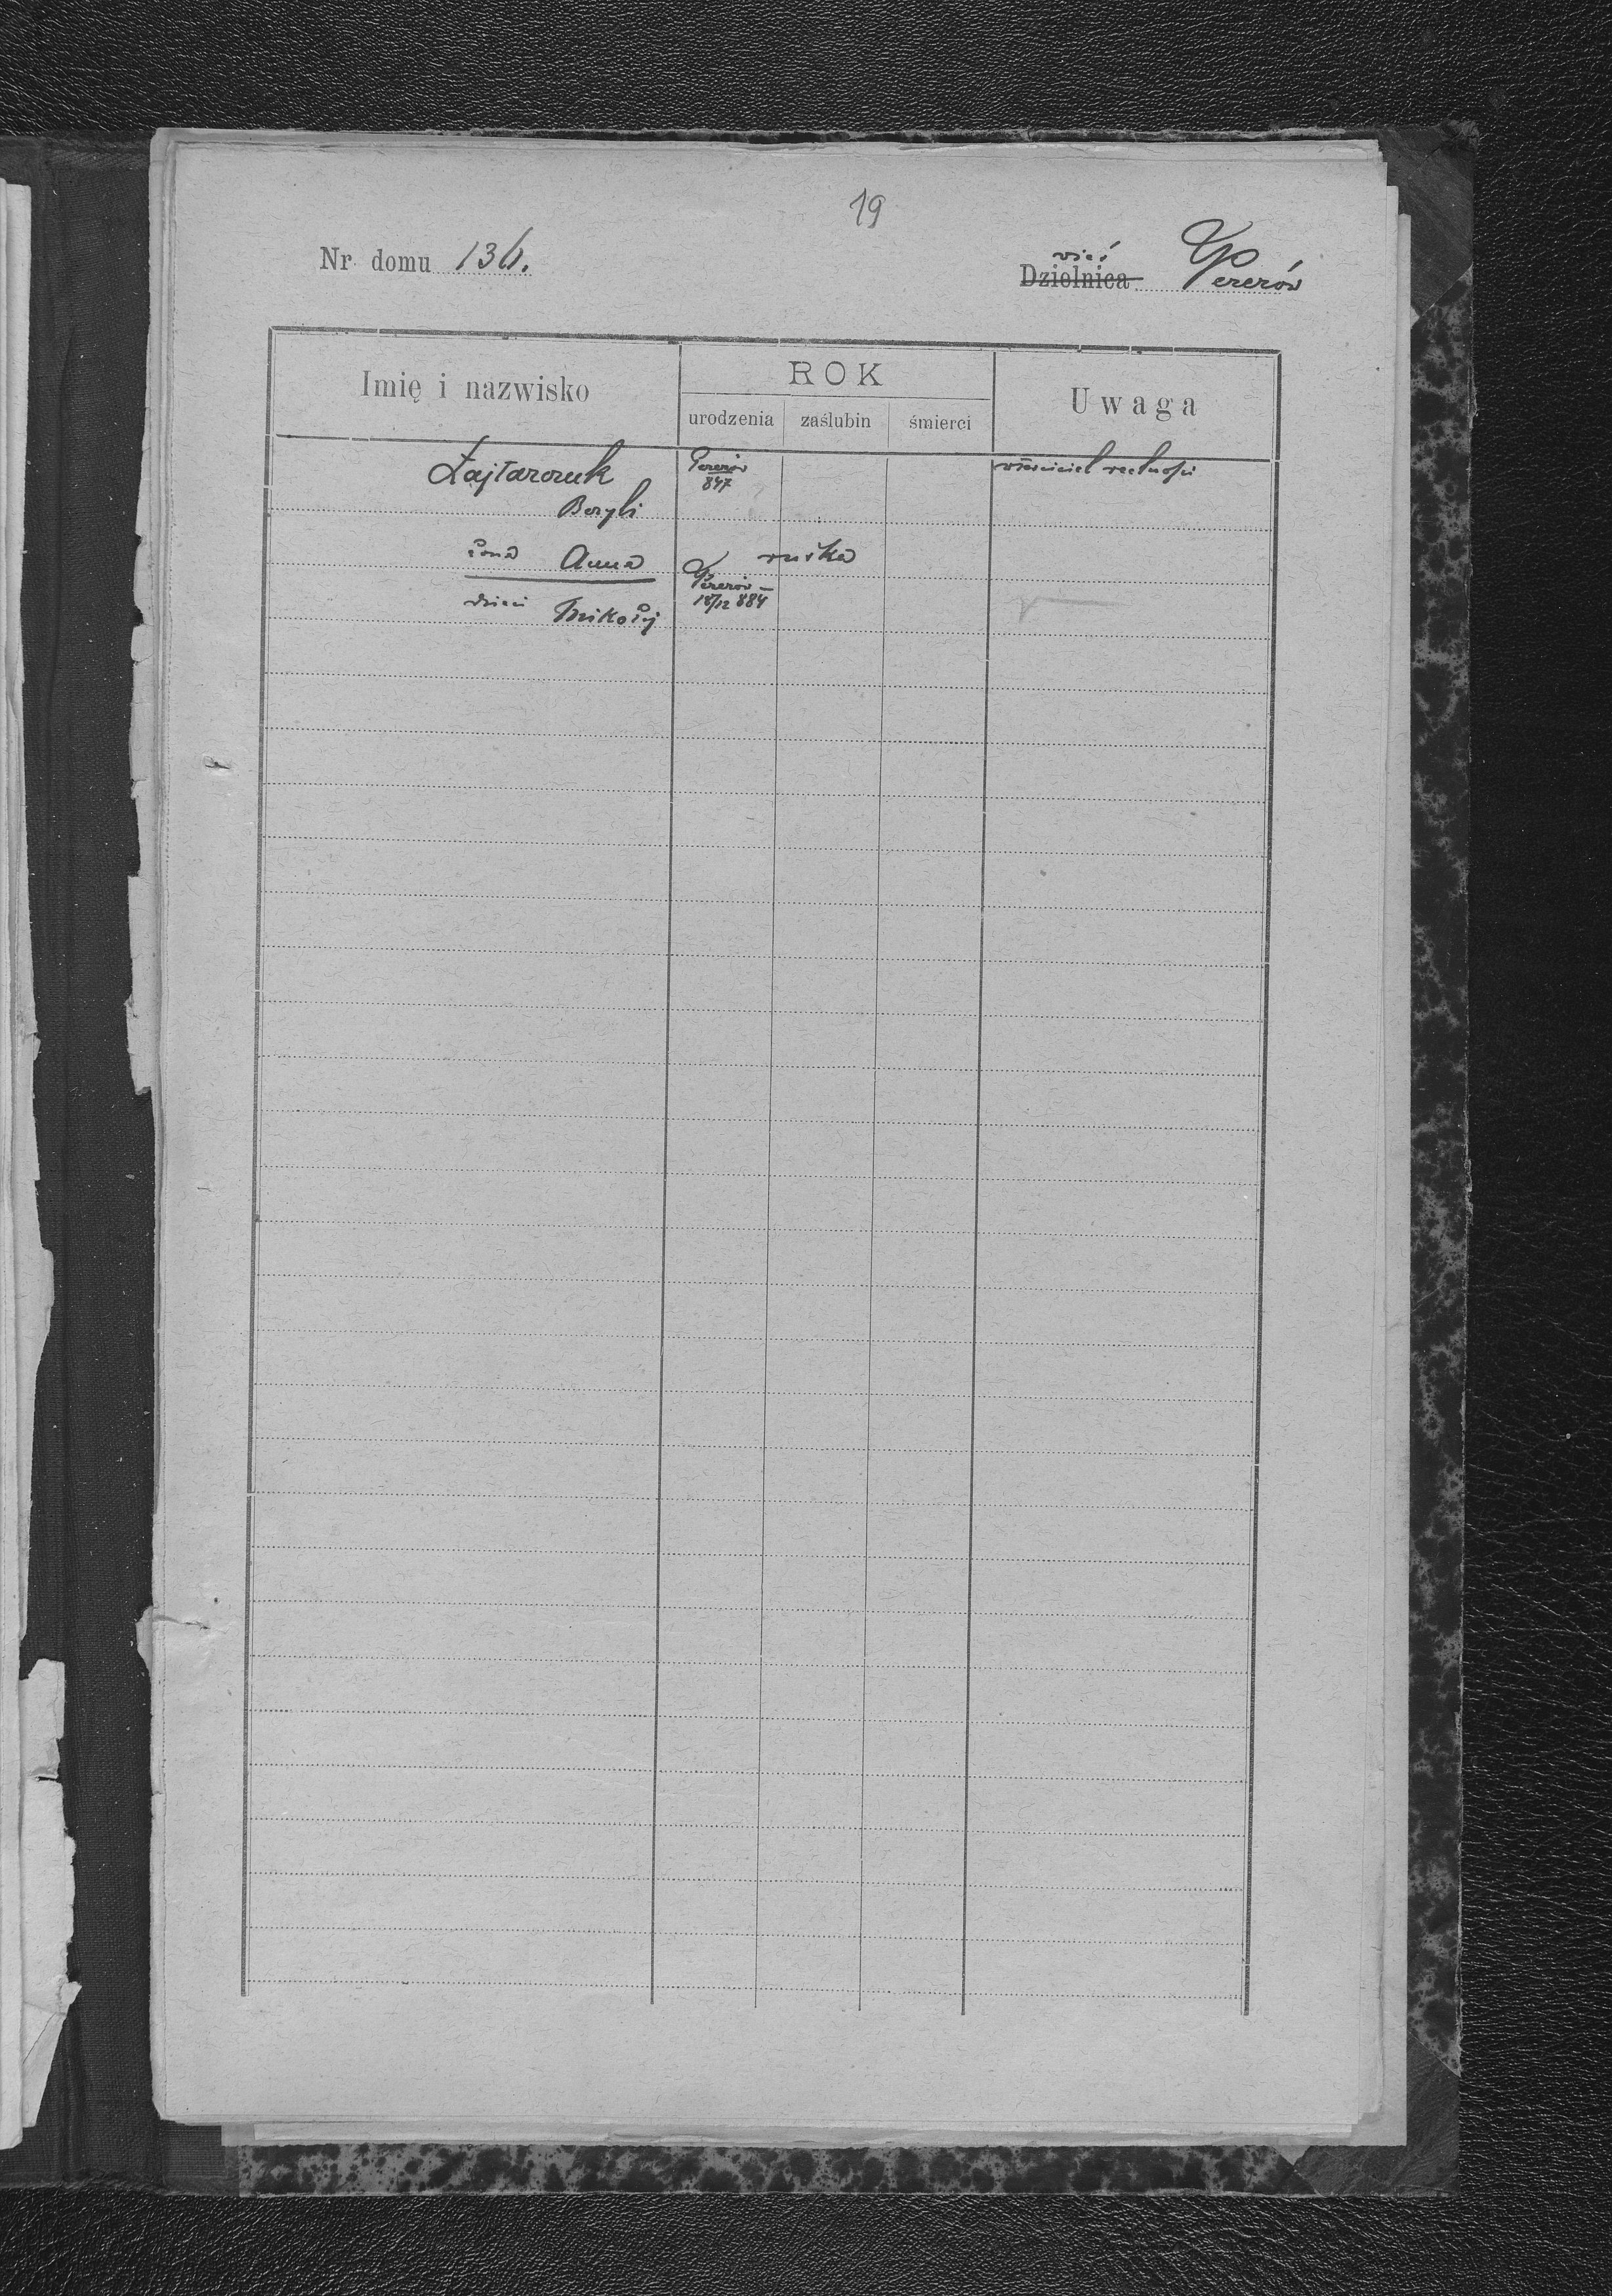 19
Nr domu 136.
wieś
Dzielnica Pererów
Imię i nazwisko
ROK
urodzenia zaślubin śmierci
Uwaga
Łajtarczuk Pererów 847 właściciel realności
Bazyli
żona Anna ruska
dzieci Mikołaj Pererów 18/12 884